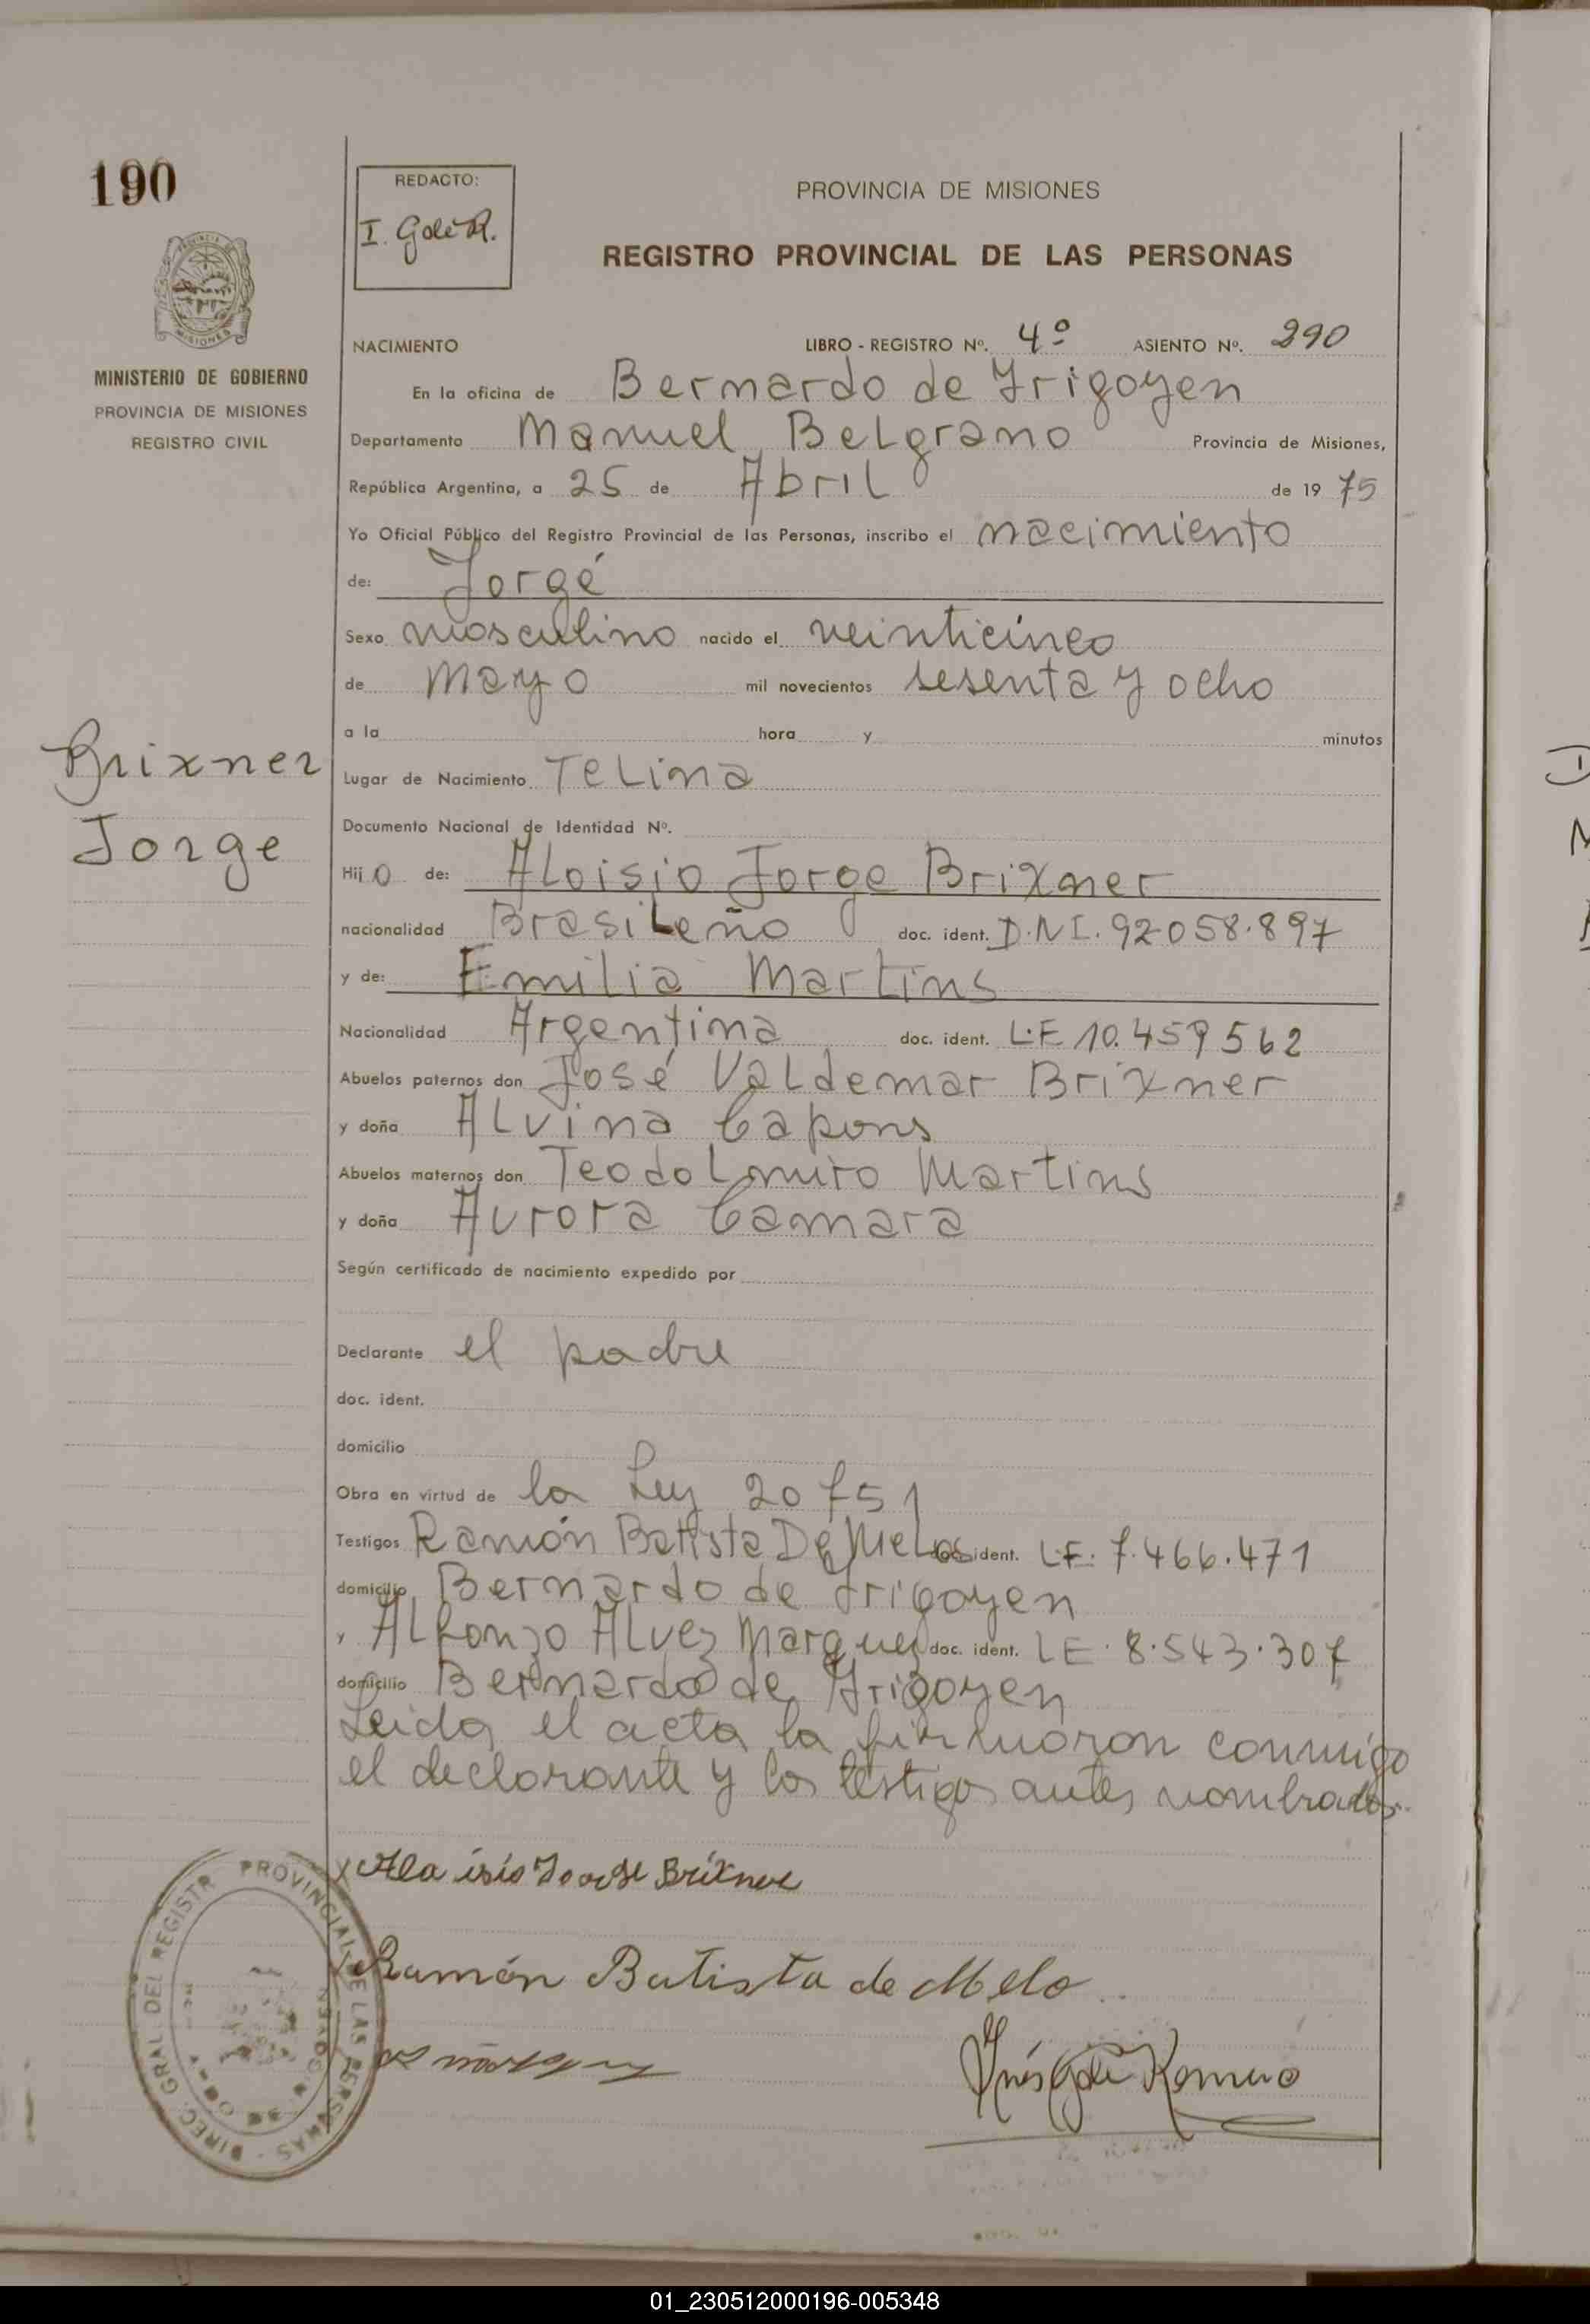 190
REDACTO:
I. G de R.
PROVINCIA DE MISIONES
REGISTRO PROVINCIAL DE LAS PERSONAS
MINISTERIO DE GOBIERNO
PROVINCIA DE MISIONES
REGISTRO CIVIL
NACIMIENTO LIBRO - REGISTRO Nº. 4º ASIENTO Nº. 290
En la oficina de Bernardo de Yrigoyen
Departamento Manuel Belgrano Provincia de Misiones,
República Argentina, a 25 de Abril de 19 75
Yo Oficial Público del Registro Provincial de las Personas, inscribo el nacimiento
de: Jorgé
Sexo masculino nacido el veinticinco
de Mayo mil novecientos sesenta y ocho
a la hora y minutos
Brixner
Jorge
Lugar de Nacimiento Telina
Documento Nacional de Identidad Nº.
Hij o de: Aloisio Jorge Brixner
nacionalidad Brasileño doc. ident. D.N.I. 92.058.897
y de: Emilia Martins
Nacionalidad Argentina doc. ident. L.E 10.459562
Abuelos paternos don José Valdemar Brixner
y doña Alvina Capons
Abuelos maternos don Teodolmiro Martins
y doña Aurora Camara
Según certificado de nacimiento expedido por
Declarante el padre
doc. ident.
domicilio
Obra en virtud de la Ley 20751
Testigos Ramón Batista De Melos doc. ident. L.E. 7.466.471
domicilio Bernardo de Yrigoyen
y Alfonzo Alvez Marquez doc. ident. LE. 8.543.307
domicilio Bernardo de Yrigoyen
Leida el acta la firmaron conmigo
el declarante y los testigos antes nombrados.
x Aloisio Jorge Brixner
Ramón Batista de Melo
Inés G de Romero
DIREC. GRAL. DEL REGISTR PROVINCIAL DE LAS PERSONAS
01_230512000196-005348